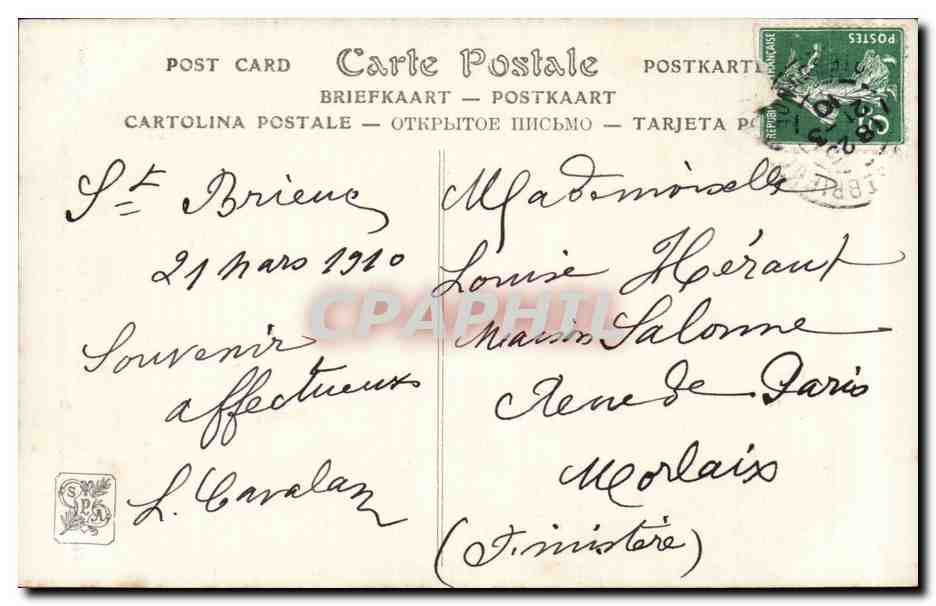 POST CARD Carte Postale POSTKARTE
BRIEFKAART — POSTKAART
CARTOLINA POSTALE — ОТКРЫТОЕ ПИСЬМО — TARJETA PO
REPUBLIQUE FRANÇAISE
POSTES
5c
St Brieuc
21 Mars 1910
Souvenir
affectueux
L. Cavalan
Mademoiselle
Louise Héraux
Maison Salonne
Rue de Paris
Morlaix
(Finistère)
SPA
CPAPHIL